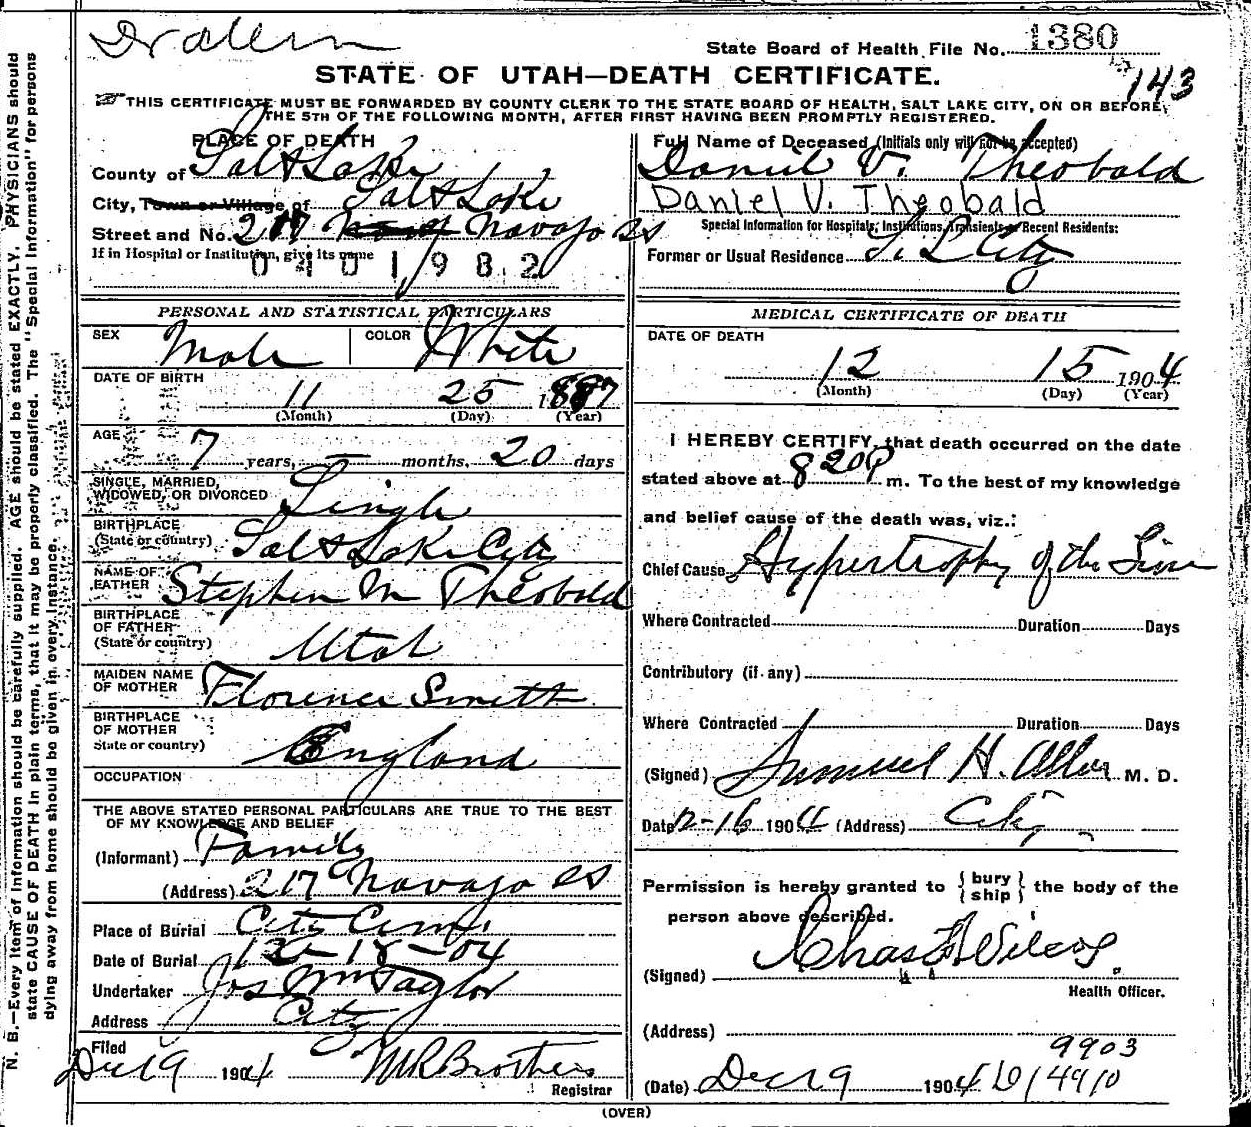 Dr Allen
State Board of Health File No. 1380
143
STATE OF UTAH—DEATH CERTIFICATE.
THIS CERTIFICATE MUST BE FORWARDED BY COUNTY CLERK TO THE STATE BOARD OF HEALTH, SALT LAKE CITY, ON OR BEFORE
THE 5TH OF THE FOLLOWING MONTH, AFTER FIRST HAVING BEEN PROMPTLY REGISTERED.
PLACE OF DEATH
County of Salt Lake
City, Town or Village of Salt Lake
Street and No. 217 Navajo
If in Hospital or Institution, give its name
0401982
PERSONAL AND STATISTICAL PARTICULARS
SEX Male COLOR White
DATE OF BIRTH
11 25 1887
(Month) (Day) (Year)
AGE
7 years, — months, 20 days
SINGLE, MARRIED,
WIDOWED, OR DIVORCED Single
BIRTHPLACE
(State or country) Salt Lake City
NAME OF
FATHER Stephen M Theobald
BIRTHPLACE
OF FATHER
(State or country) Utah
MAIDEN NAME
OF MOTHER Florence Smith
BIRTHPLACE
OF MOTHER
State or country) England
OCCUPATION
THE ABOVE STATED PERSONAL PARTICULARS ARE TRUE TO THE BEST
OF MY KNOWLEDGE AND BELIEF
(Informant) Family
(Address) 217 Navajo
Place of Burial City Cem.
Date of Burial 12-18-04
Undertaker Jos Wm Taylor
Address City
Filed
Dec 19 1904
Registrar
Full Name of Deceased (Initials only will not be accepted)
Daniel V. Theobald
Daniel V. Theobald
Special Information for Hospitals, Institutions, Transients or Recent Residents:
Former or Usual Residence S. L City
MEDICAL CERTIFICATE OF DEATH
DATE OF DEATH
12 15 1904
(Month) (Day) (Year)
I HEREBY CERTIFY, that death occurred on the date
stated above at 8 20 P m. To the best of my knowledge
and belief cause of the death was, viz.:
Chief Cause Hypertrophy of the Liver
Where Contracted Duration Days
Contributory (if any)
Where Contracted Duration Days
(Signed) Samuel H. Allen M. D.
Date 12-16 1904 (Address) City
Permission is hereby granted to { bury ship } the body of the
person above described.
(Signed) Chas F Wilcox
Health Officer.
(Address)
9903
(Date) Dec 19 1904
(OVER)
N. B.—Every item of Information should be carefully supplied. AGE should be stated EXACTLY. PHYSICIANS should
state CAUSE OF DEATH in plain terms, that it may be properly classified. The "Special Information" for persons
dying away from home should be given in every instance.